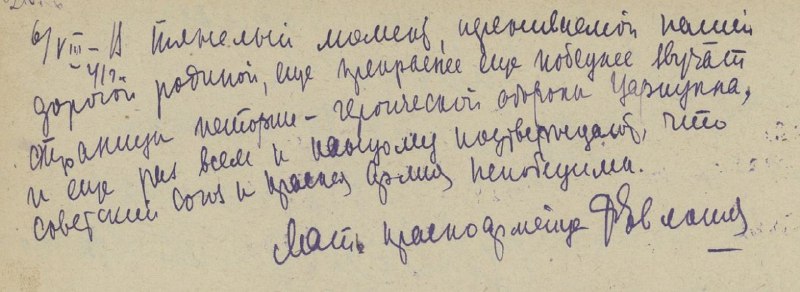 6/VIII – В тяжелый момент, переживаемой нашей
41 г.
дорогой родиной, еще прекраснее еще победнее звучат
страницы истории – героической обороны Царицына,
и еще раз всем и каждому подтверждают, что
советский союз и красная армия непобедима.
Мать красноармейца